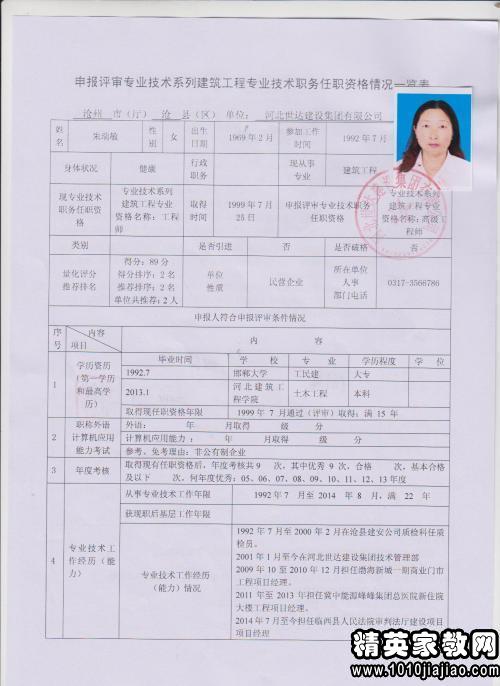 申报评审专业技术系列建筑工程专业技术职务任职资格情况一览表
沧州 市(厅) 沧 县(区) 单位： 河北世达建设集团有限公司
姓名 朱瑞敏 性别 女 出生日期 1969年2月 参加工作时间 1992年7月
身体状况 健康 行政职务 现从事专业 建筑工程
现专业技术职务任职资格 专业技术系列建筑工程专业资格名称：工程师 取得时间 1999年7月25日 申报评审专业技术职务任职资格 专业技术系列建筑工程专业资格名称：高级工程师
类别 是否引进 否 是否破格 否
量化评分推荐排名 得分：89分
得分排序：2名
推荐排序：2名
单位共推荐：2人
单位性质 民营企业 所在单位人事部门电话 0317-3566786
申报人符合申报评审条件情况
序号 内容 项目 内 容
1 学历资历(第一学历和最高学历) 毕业时间 学 校 专 业 学历程度 学 位
1992.7 邯郸大学 工民建 大专
2013.1 河北建筑工程学院 土木工程 本科
取得现任职资格年限 1999年7月通过(评审)取得；满 15 年
2 职称外语计算机应用能力考试 外语： 年 月取得 级 分
计算机应用能力： 年 月取得 级 分
参考、免考理由：非公有制企业
3 年度考核 取得现有任职资格后，年度考核共9 次，其中优秀 9次，合格 次，基本合格
及以下 次，何年度优秀：05、06、07、08、09、10、11、12、13年度
4 专业技术工作经历(能力) 从事专业技术工作年限 1992年7 月至2014 年 8月，满 22 年
获现职后基层工作年限
专业技术工作经历(能力)情况
1992年7月至2000年2月在沧县建安公司质检科任质检员。
2001年1月至今在河北世达建设集团技术管理部
2009年10至2010年12月担任渤海新城一期商业门市工程项目经理。
2011年至2013年担任冀中能源峰峰集团总医院新住院大楼工程项目经理。
2014年7月至今担任临西县人民法院审判法厅建设项目项目经理
精英家教网
www.1010jiajiao.com